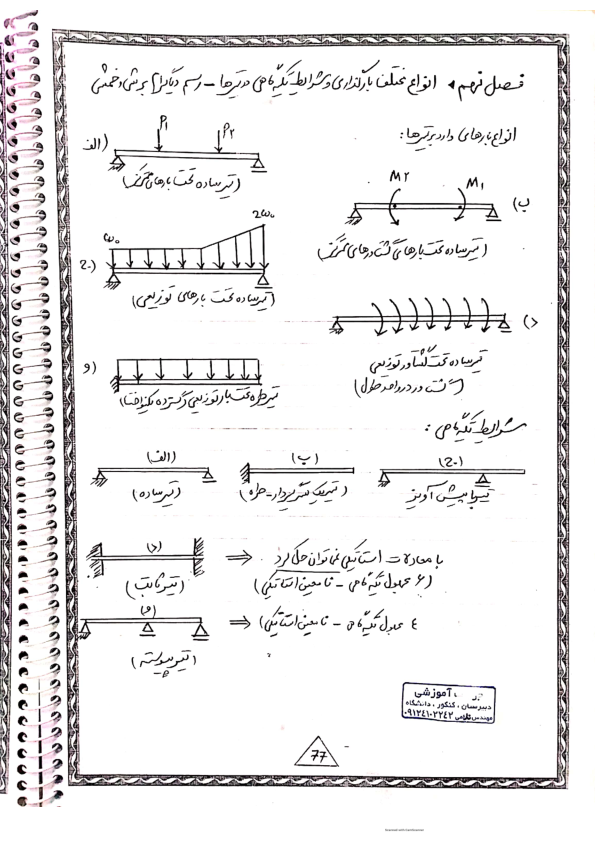 فصل نهم • انواع مختلف بارگذاری و شرایط تکیه گاهی در تیرها - رسم دیاگرام برشی و خمشی
انواع بارهای وارد بر تیرها:
الف)
P1
P2
(تیر ساده تحت بارهای متمرکز)
ب)
M2
M1
(تیر ساده تحت بارهای گشتاورهای متمرکز)
ج)
ω0
2ω0
(تیر ساده تحت بارهای توزیعی)
د)
تیر ساده تحت گشتاور توزیعی
(گشتاور در واحد طول)
و)
تیر طره تحت بار توزیعی (گسترده یکنواخت)
شرایط تکیه گاهی:
(الف)
(تیر ساده)
(ب)
(تیر یک سر گیردار - طره)
(ج)
تیر با پیش آویز
(د)
(تیر ثابت)
⇐ با معادلات استاتیکی نمی توان حل کرد
(۶ مجهول تکیه گاهی - نامعین استاتیکی)
(و)
(تیر پیوسته)
⇒ ٤ مجهول تکیه گاهی - نامعین استاتیکی)
آموزشی
دبیرستان ، کنکور ، دانشگاه
مهندس غلامی ۰۹۱۲۴۱۰۲۲۴۲
77
Scanned with CamScanner